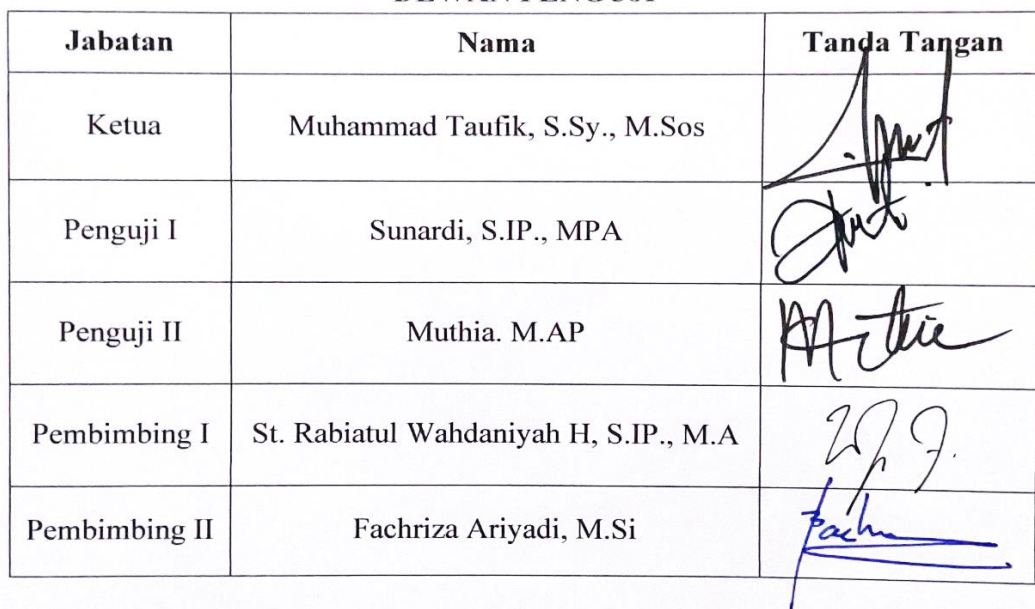 DEWAN PENGUJI
Jabatan Nama Tanda Tangan
Ketua Muhammad Taufik, S.Sy., M.Sos
Penguji I Sunardi, S.IP., MPA
Penguji II Muthia. M.AP
Pembimbing I St. Rabiatul Wahdaniyah H, S.IP., M.A
Pembimbing II Fachriza Ariyadi, M.Si